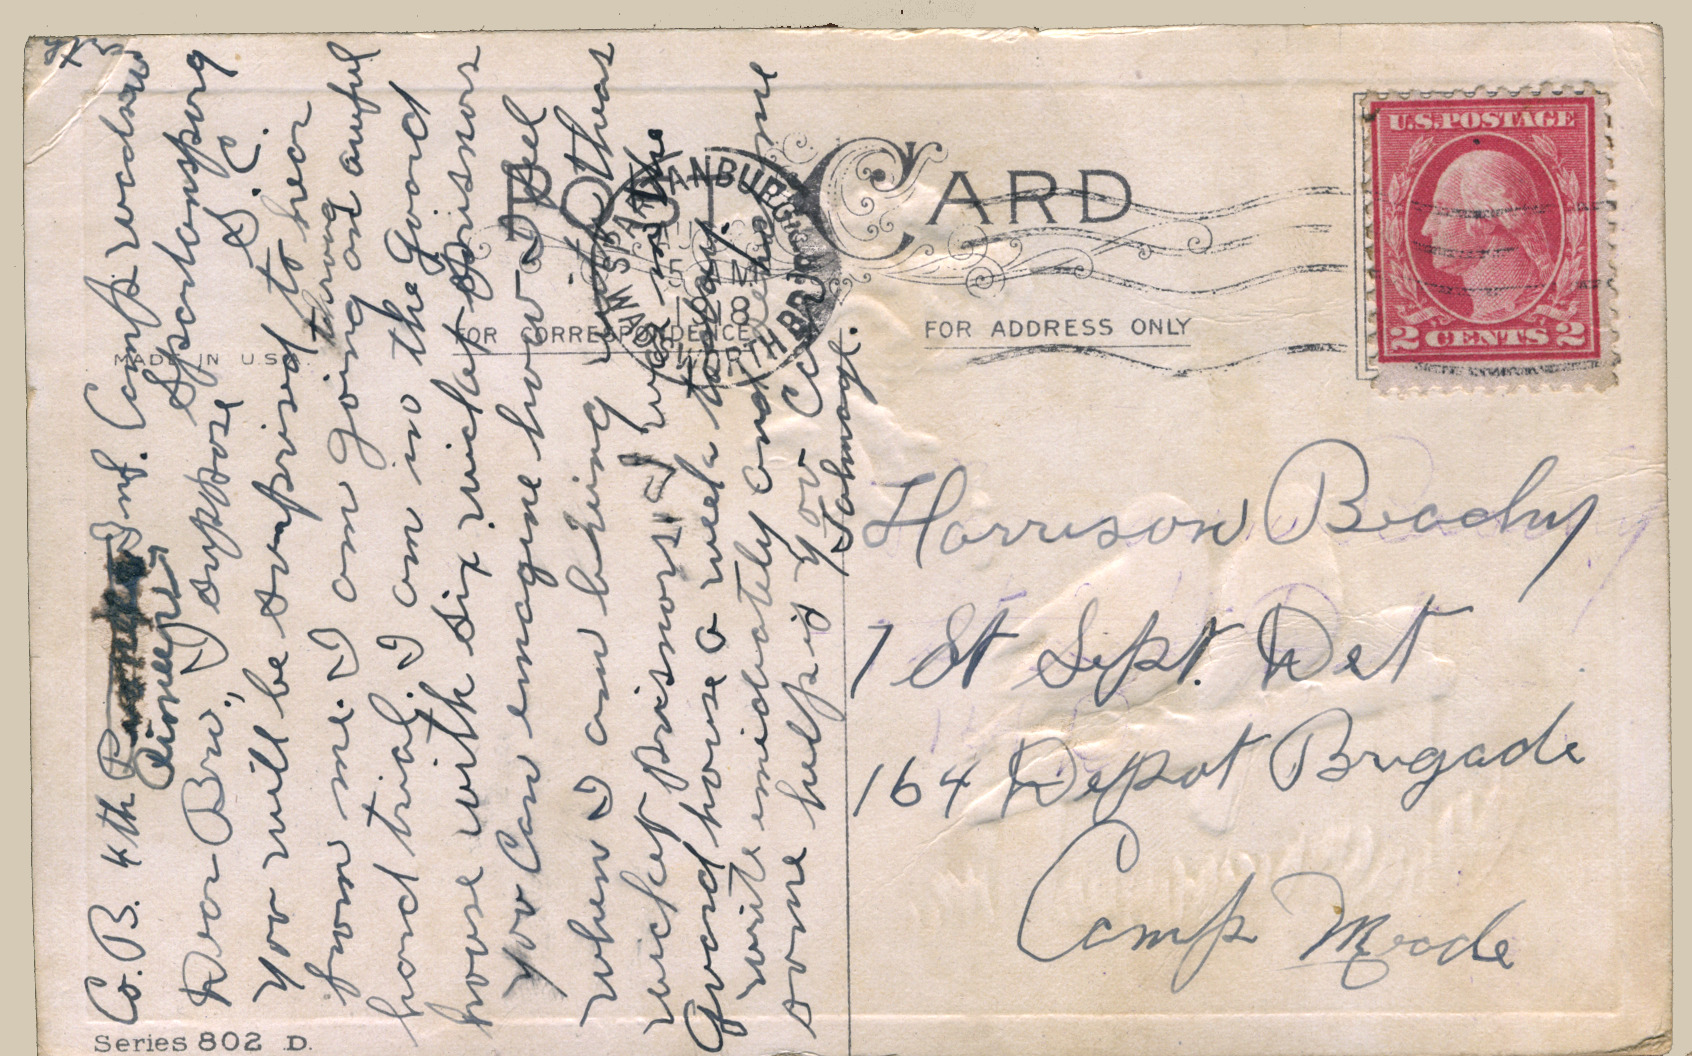 POST CARD
MADE IN U.S.A.
FOR CORRESPONDENCE
FOR ADDRESS ONLY
SPARTANBURG
AM
1918
WADSWORTH BR.
U.S. POSTAGE
2 CENTS 2
Co. B. 4th Pioneer Inf. Camp wadsw
Spartansburg
S. C.
Dear Bro, I suppose
you will be surprised to hear
from me. I am going through an awful
hard trial. I am in the guard
house with six wicket prissnors
you can emagine how I feel
when I am being with these
wicket prissnors. I was in the
guard house a week to day.
write imediately and give me
some help if you can
J. Tahmayt.
Harrison Beachy
7 St Sept. Det
164 Depot Brigade
Camp Meade
Series 802 D.